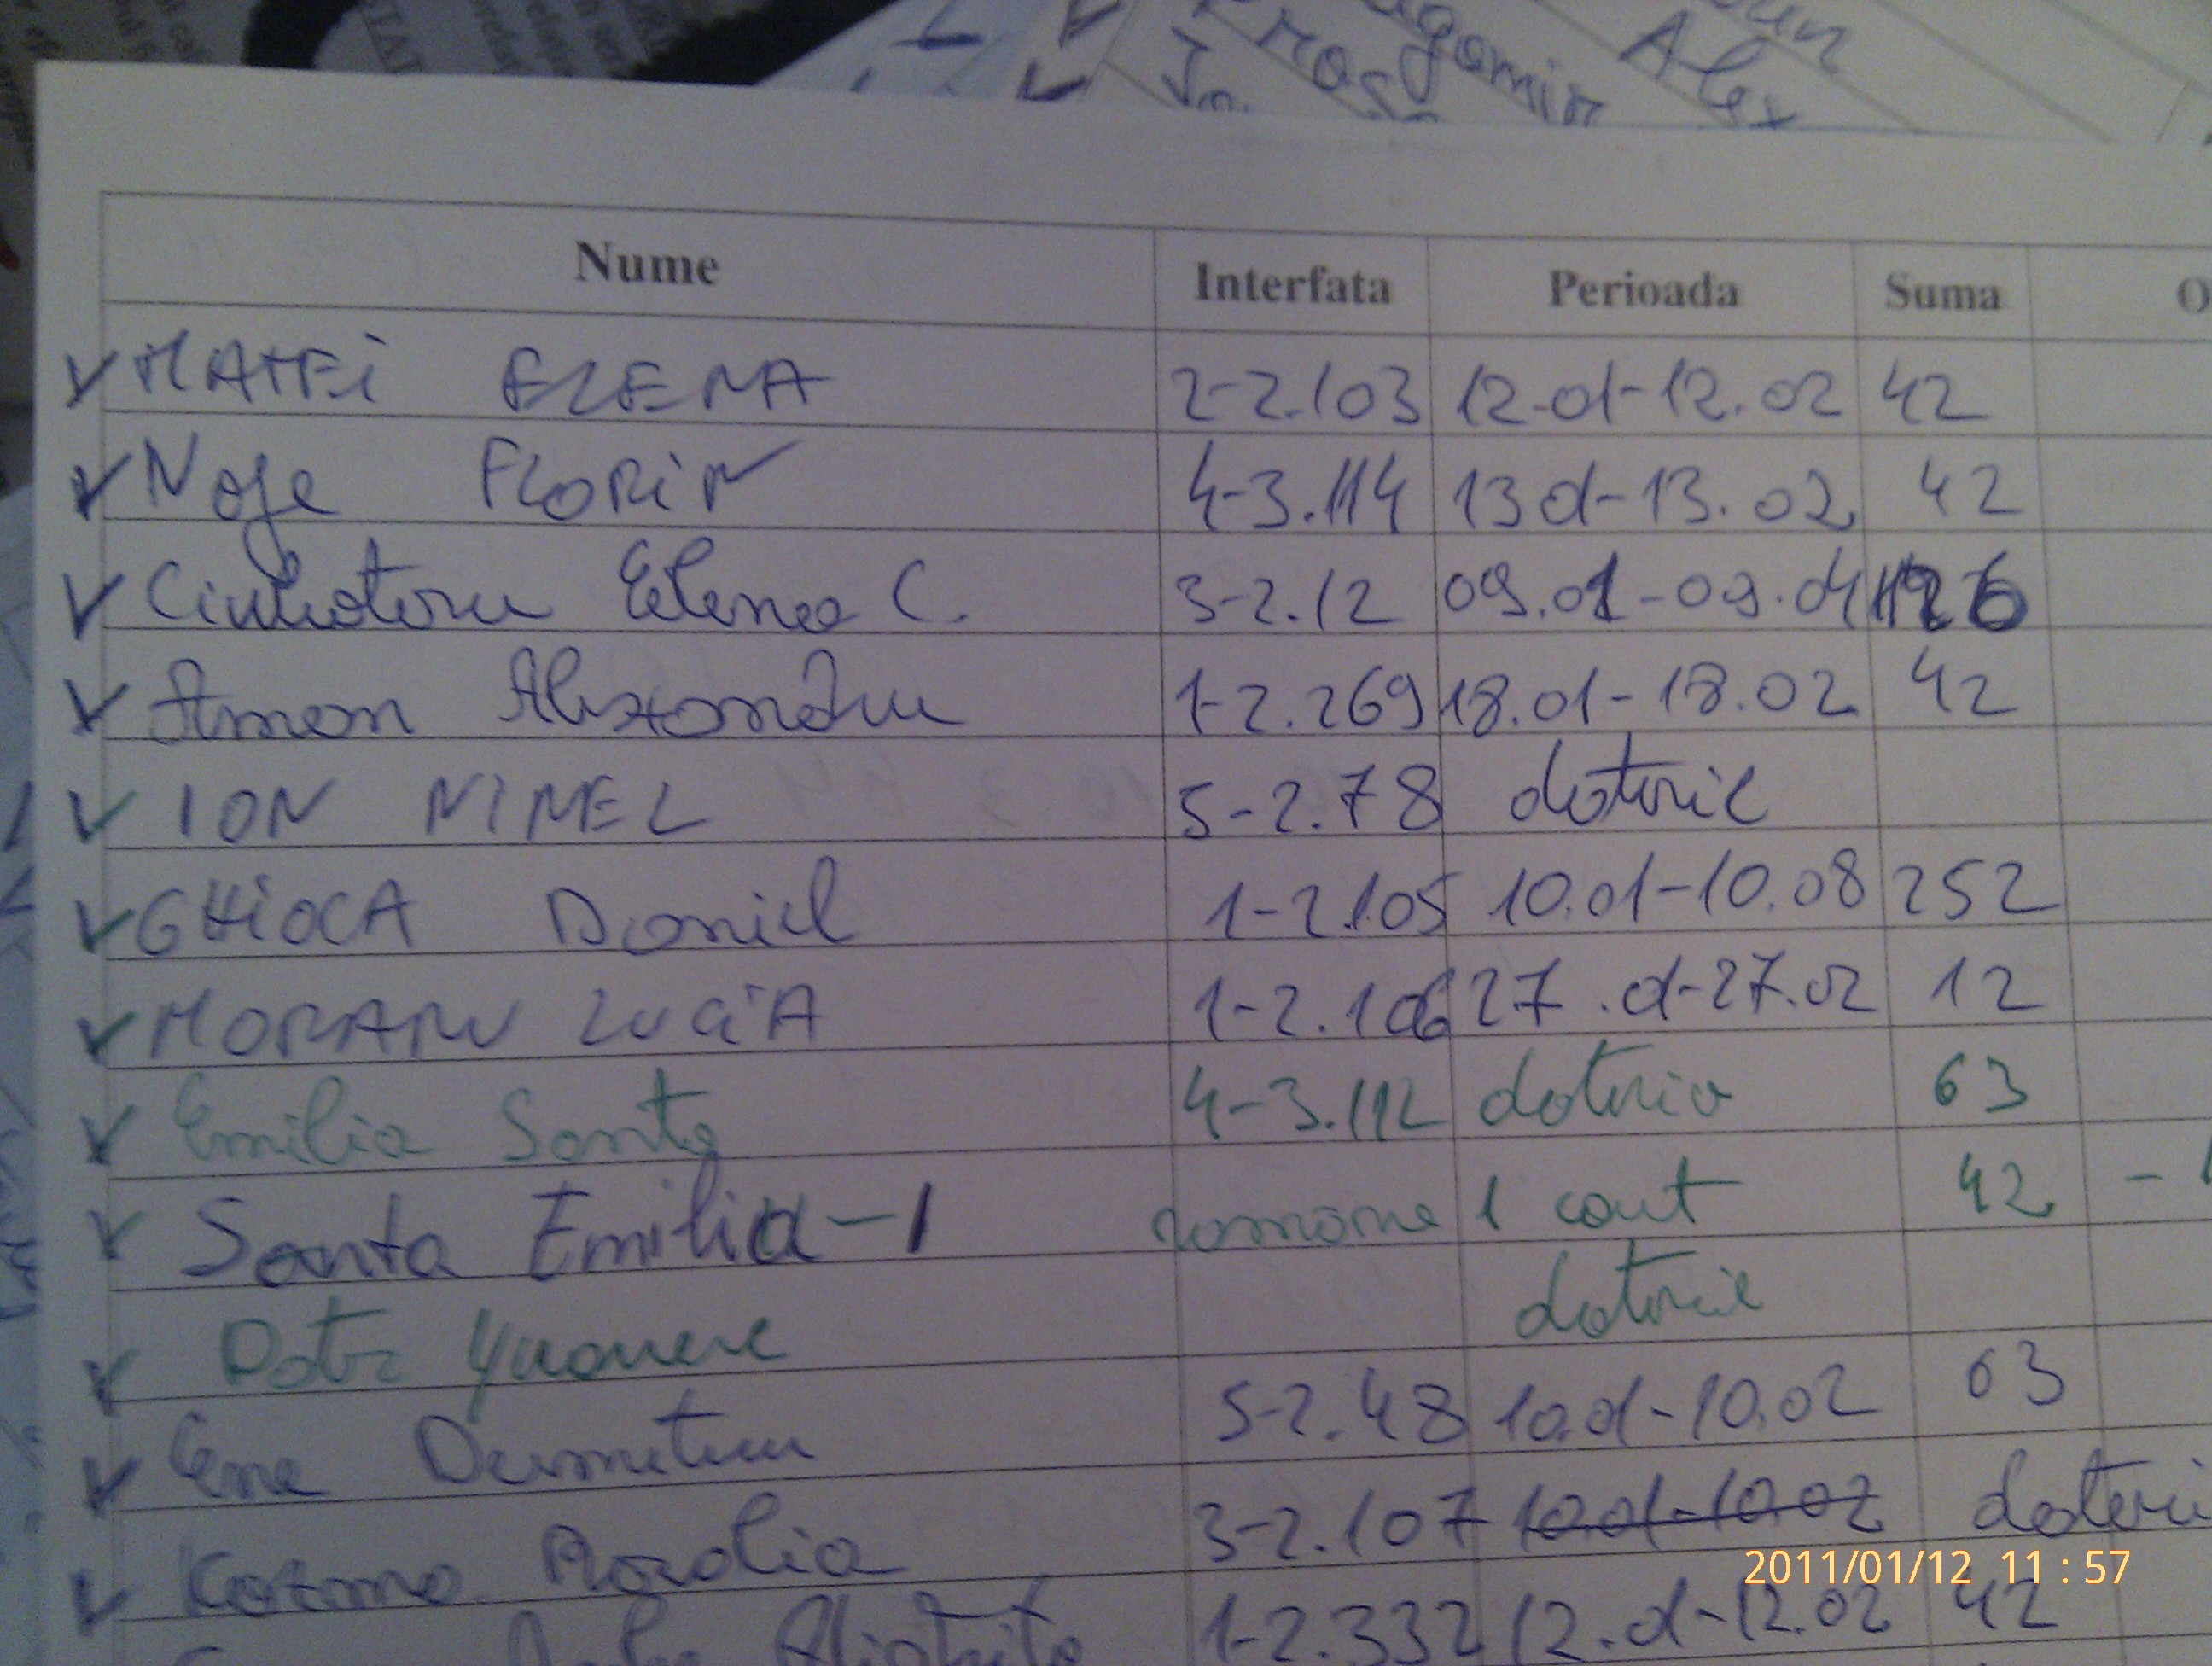 Alex
Nume Interfata Perioada Suma O
MATEi ELENA 2-2.103 12.01-12.02 42
Noje FLORiN 4-3.114 13 01-13.02 42
Elena C. 3-2.12 09.01-09.04 126
Aman Alexandru 1-2.269 18.01-18.02 42
ION NINEL 5-2.78 datorie
GHiOCA Daniel 1-2.105 10.01-10.08 252
MORARU LUCiA 1-2.106 27.01-27.02 12
Emilia Santa 4-3.112 datorie 63
Santa Emilia-1 ramane 1 cont 42 -
datorie
Ene Dumitru 5-2.48 10.01-10.02 63
3-2.107 10.01-10.02 datori
2011/01/12 11:57
1-2.332 12.01-12.02 42